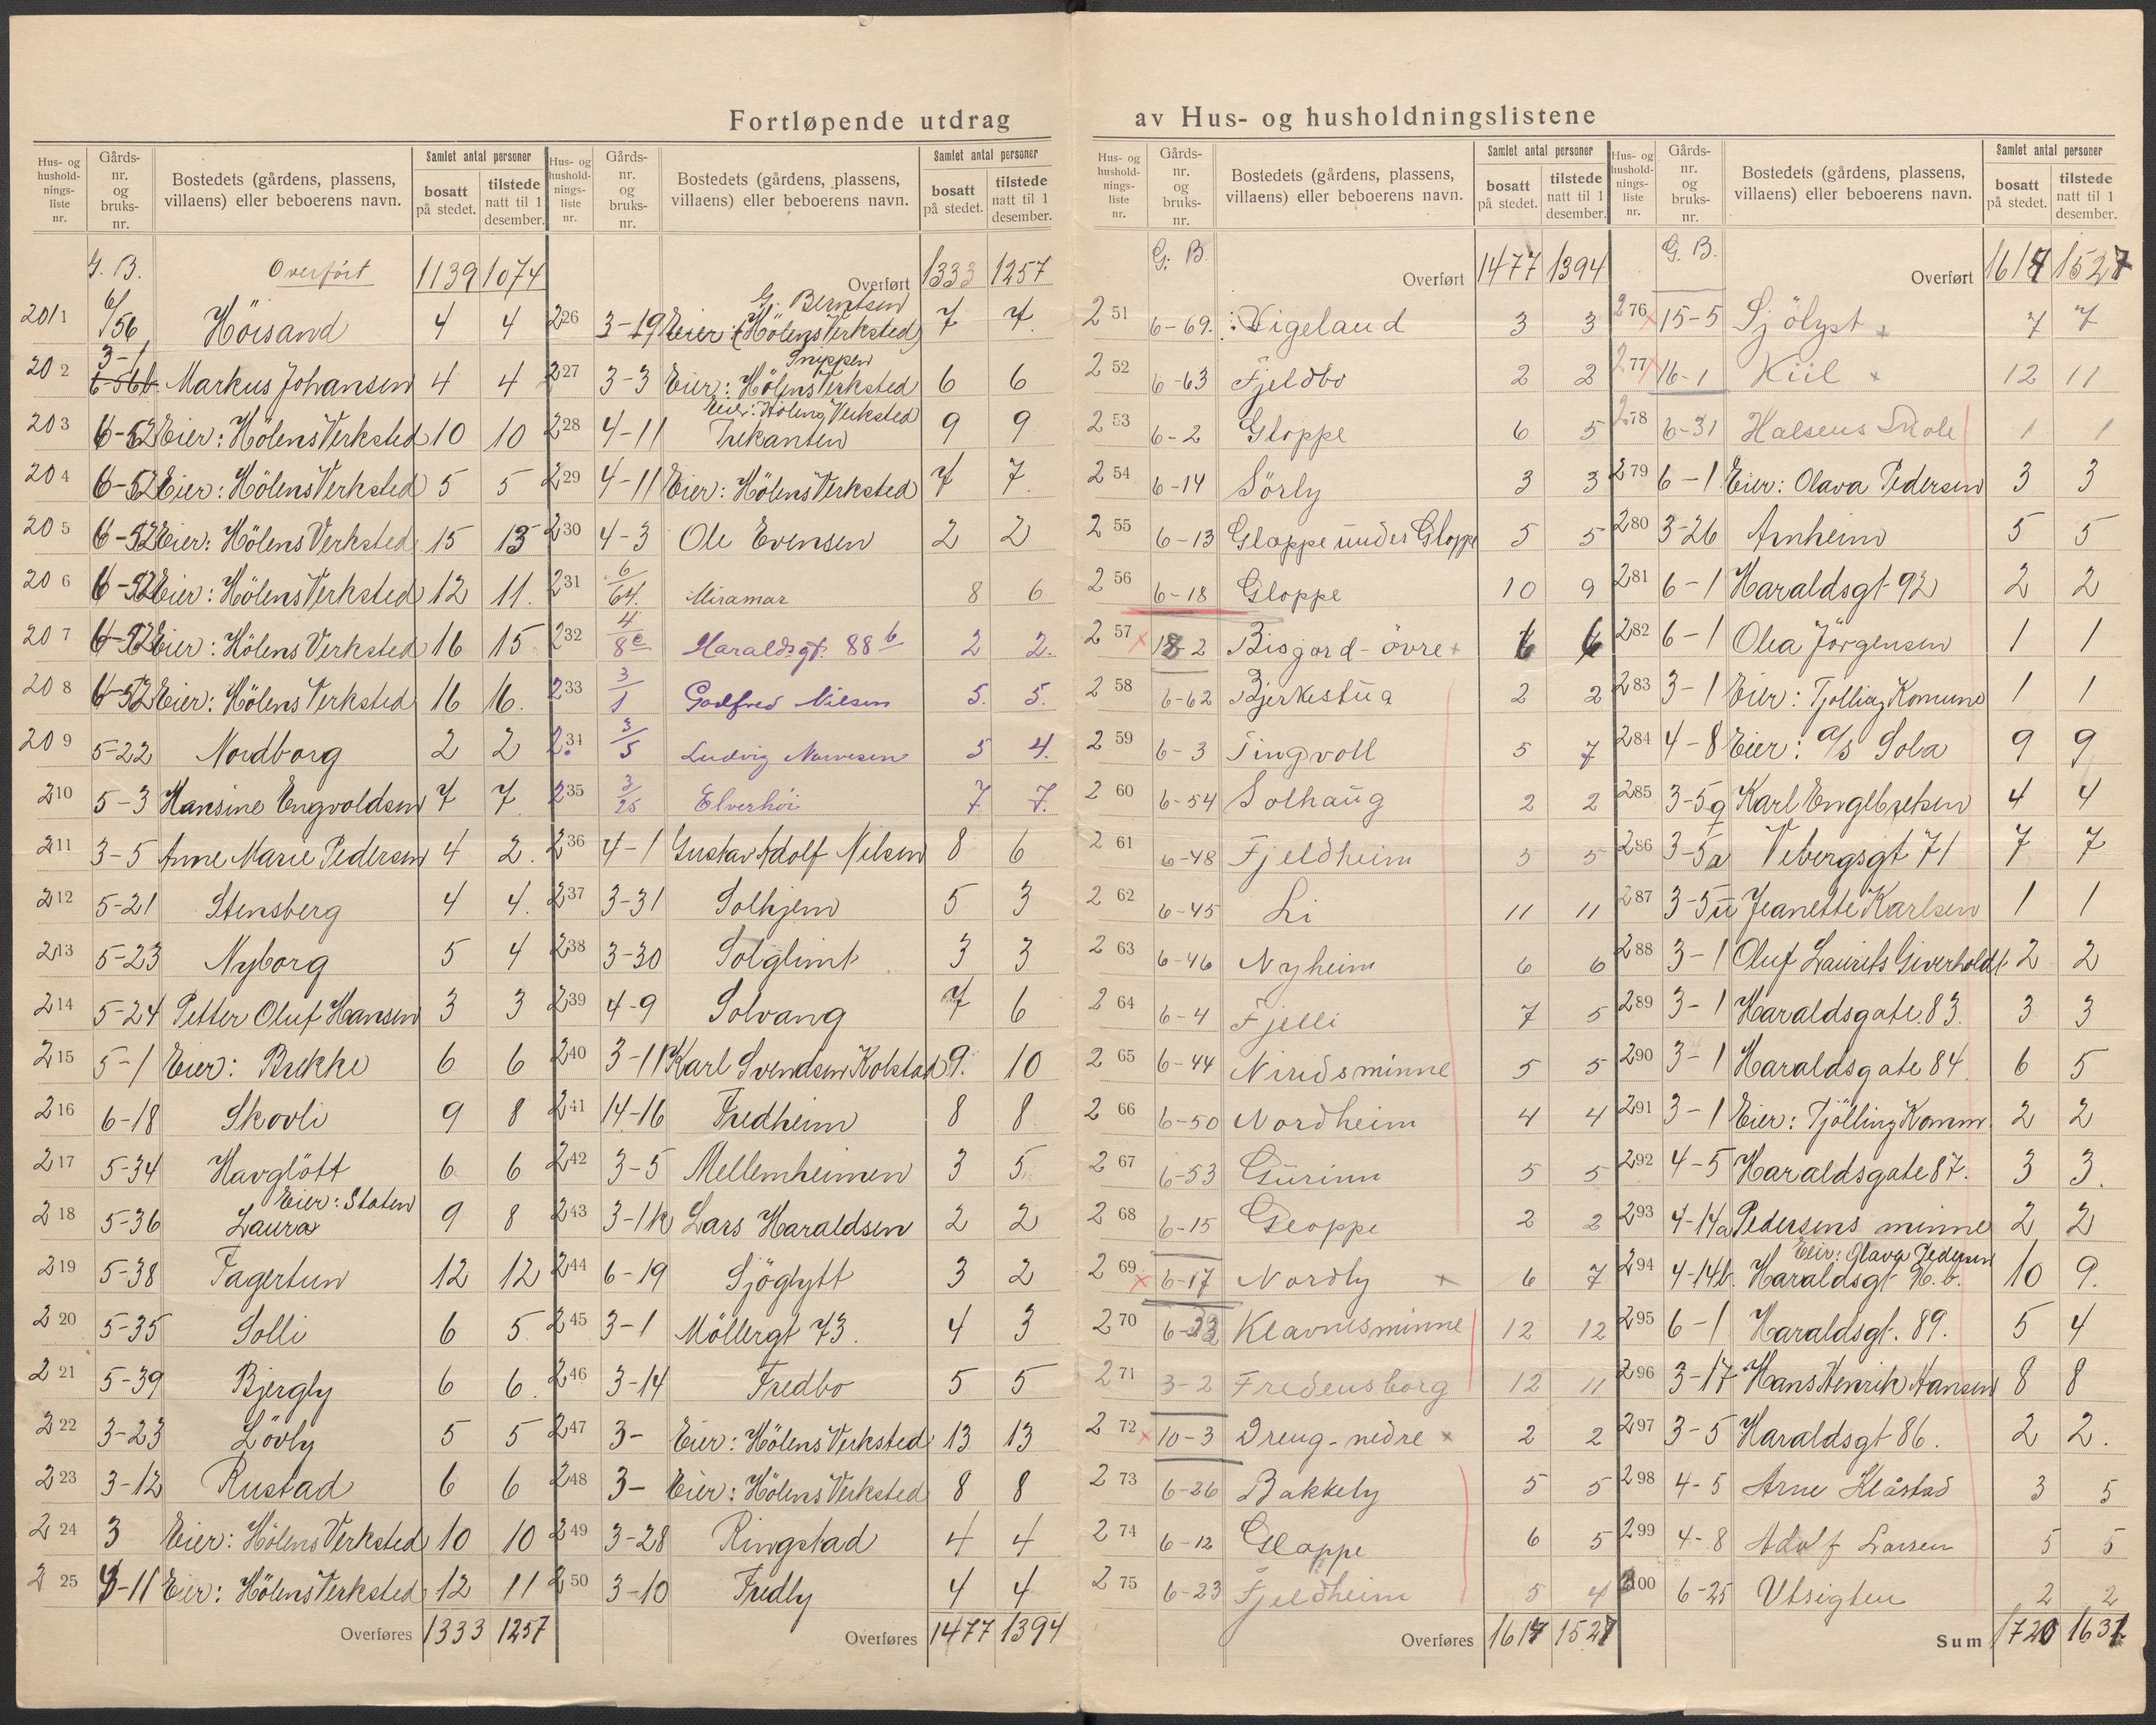 Fortløpende utdrag av Hus- og husholdningslistene
Hus- og hushold-nings-liste nr. Gårds-nr. og bruks-nr. Bostedets (gårdens, plassens, villaens) eller beboerens navn. Samlet antal personer bosatt på stedet. tilstede natt til 1 desember.
G. B. Overført 1139 1074
201 6/56 Höisand 4 4
202 3-1 6-56b. Markus Johansen 4 4
203 6-52 Eier: Hölens Verksted 10 10
204 6-52 Eier: Hölens Verksted 5 5
205 6-52 Eier: Hölens Verksted 15 13
206 6-52 Eier: Hölens Verksted 12 11.
207 6-52 Eier: Hölens Verksted 16 15
208 6-52 Eier: Hölens Verksted 16 16.
209 5-22 Nordborg 2 2
210 5-3 Hansine Engvoldsen 7 7
211 3-5 Anne Marie Pedersen 4 2.
212 5-21 Stensberg 4 4.
213 5-23 Nyborg 5 4
214 5-24 Petter Oluf Hansen 3 3
215 5-1 Eier: Brekke 6 6
216 6-18 Skovli 9 8
217 5-34 Havglött 6 6
218 5-36 Eier: Staten Laura 9 8
219 5-38 Fagertun 12 12
220 5-35 Solli 6 5
221 5-39 Bjergly 6 6.
222 3-23 Lövly 5 5
223 3-12 Rustad 6 6
224 3 Eier: Hölens Verksted 10 10
225 4-11 Eier: Hölens Verksted 12 11
Overføres 1333 1257
Hus- og hushold-nings-liste nr. Gårds-nr. og bruks-nr. Bostedets (gårdens, plassens, villaens) eller beboerens navn. Samlet antal personer bosatt på stedet. tilstede natt til 1 desember.
Overført 1333 1257
226 3-19 G. Berntsen Eier: (Hölens Verksted) 7 7.
227 3-3 Snippen Eier: Hölens Verksted 6 6
228 4-11 Eier: Hölens Verksted Trekanten 9 9
229 4-11 Eier: Hölens Verksted 7 7.
230 4-3 Ole Evensen 2 2
231 6/64. Miramar 8 6
232 4/8e Haraldsgt. 88b 2 2.
233 3/1 Godfred Nilsen 5. 5.
234 3/5 Ludvig Narvesen 5 4.
235 3/25 Elverhöi 7. 7.
236 4-1 Gustav Adolf Nilsen 8 6
237 3-31 Solhjem 5 3
238 3-30 Solglimt 3 3
239 4-9 Solvang 7 6
240 3-11 Karl Svendsen Kolstad 9. 10
241 14-16 Fredheim 8 8
242 3-5 Mellemheimen 3 5
243 3-1k Lars Haraldsen 2 2
244 6-19 Sjöglytt 3 2
245 3-1 Möllergt 73. 4 3
246 3-14 Fredbo 5 5
247 3- Eier: Hölens Verksted 13 13
248 3- Eier: Hölens Verksted 8 8
249 3-28 Ringstad 4 4
250 3-10 Fredly 4 4
Overføres 1477 1394
Hus- og hushold-nings-liste nr. Gårds-nr. og bruks-nr. Bostedets (gårdens, plassens, villaens) eller beboerens navn. Samlet antal personer bosatt på stedet. tilstede natt til 1 desember.
G. B. Overført 1477 1394
251 6-69. Vigeland 3 3
252 6-63 Fjeldbo 2 2
253 6-2 Gloppe 6 5
254 6-14 Sörly 3 3
255 6-13 Gloppe under Gloppe 5 5
256 6-18 Gloppe 10 9
257 18-2 Bisjord-övre 6 6
258 6-62 Bjerkestua 2 2
259 6-3 Tingvoll 5 7
260 6-54 Solhaug 2 2
261 6-48 Fjeldheim 5 5
262 6-45 Li 11 11
263 6-46 Nyheim 6 6
264 6-4 Fjelli 7 5
265 6-44 Niridsminne 5 5
266 6-50 Nordheim 4 4
267 6-53 Gurinn 5 5
268 6-15 Gloppe 2 2
269 6-17 Nordly 6 7
270 6-33 Klavnesminne 12 12
271 3-2 Fredensborg 12 11
272 10-3 Dreng-nedre 2 2
273 6-26 Bakkely 5 5
274 6-12 Gloppe 6 5
275 6-23 Fjeldheim 5 4
Overføres 1617 1527
Hus- og hushold-nings-liste nr. Gårds-nr. og bruks-nr. Bostedets (gårdens, plassens, villaens) eller beboerens navn. Samlet antal personer bosatt på stedet. tilstede natt til 1 desember.
G. B. Overført 1617 1527
276 15-5 Sjölyst 7 7
277 16-1 Kiil 12 11
278 6-31 Halsens Skole 1 1
279 6-1 Eier: Olava Pedersen 3 3
280 3-26 Arnheim 5 5
281 6-1 Haraldsgt 92 2 2
282 6-1 Olea Jörgensen 1 1
283 3-1 Eier: Tjölling Komune 1 1
284 4-8 Eier: A/S Sola 9 9
285 3-5g Karl Engelbretsen 4 4
286 3-5a Vebergsgt 71 7 7
287 3-5ü Jeanette Karlsen 1 1
288 3-1 Oluf Laurits Giverholdt 2 2
289 3-1 Haraldsgate 83. 3 3
290 3-1 Haraldsgate 84. 6 5
291 3-1 Eier: Tjölling Komm. 2 2
292 4-5 Haraldsgate 87. 3 3.
293 4-14a Pedersens minne 2 2
294 4-14b. Eier: Olava Pedersen Haraldsgt 90.b. 10 9.
295 6-1 Haraldsgt. 89. 5 4
296 3-17 Hans Henrik Hansen 8 8
297 3-5 Haraldsgt 86. 2 2.
298 4-5 Arne Klåstad 3 5
299 4-8 Adolf Larsen 5 5
300 6-25 Utsigten 2 2
Sum 1720 1631